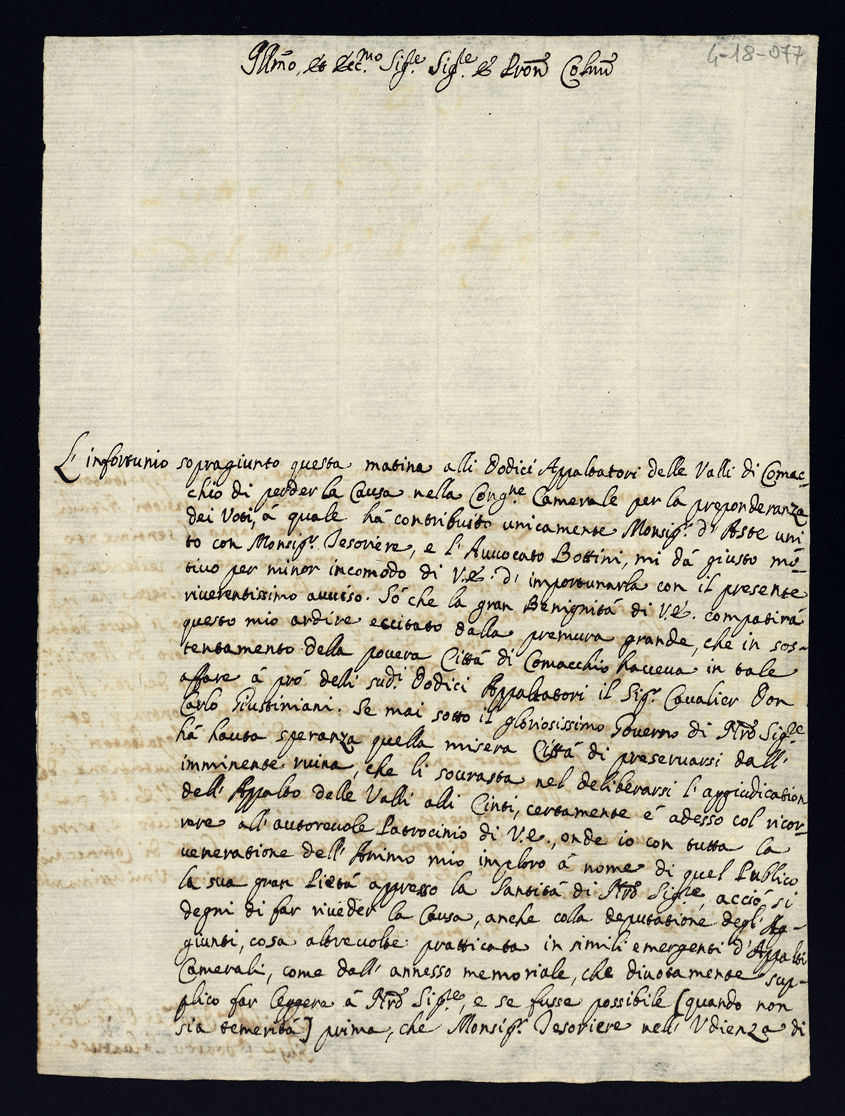 4-18-077
Illmo, et Ecc.mo Sig.re Sig.re et Pron Colmo
L'infortunio sopragiunto questa matina alli Dodici Appaltatori delle Valli di Comac-
chio di perder la Causa nella Cong.ne Camerale per la preponderanza
dei Voti, á quale há contribuito unicamente Monsig.r d'Aste uni-
to con Monsig.r Tesoriere, e l'Avvocato Bottini, mi dá giusto mo-
tivo per minor incomodo di V.E. d'importunarla con il presente
riverentissimo avviso. Só che la gran Benignitá di V.E. compatirá
questo mio ardire eccitato dalla premura grande, che in sos-
tentamento della povera Cittá di Comacchio haveva in tale
affare á pró delli sud.i Dodici Appaltatori il Sig.r Cavalier Don
Carlo Giustiniani. Se mai sotto il gloriosissimo Governo di Nrô Sig.re
há hauta speranza quella misera Cittá di preservarsi dall'
imminente ruina, che li sovrasta nel deliberarsi l'aggiudication
dell'Appalto delle Valli alli Cinti, certamente é adesso col ricor-
rere all'autorevole Patrocinio di V.E., onde io con tutta la
veneratione dell'Animo mio imploro á nome di quel Publico
la sua gran Pietá appresso la Santitá di Nrô Sig.re, acció si
degni di far riveder la Causa, anche colla deputatione degl'Ag-
giunti, cosa altrevolte pratticata in simili emergenti d'Appalti
Camerali, come dall'annesso memoriale, che divotamente sup-
plico far leggere á Nrô Sig.re, e se fusse possibile (quando non
sia temeritá) prima, che Monsig.r Tesoriere nell'Udienza di